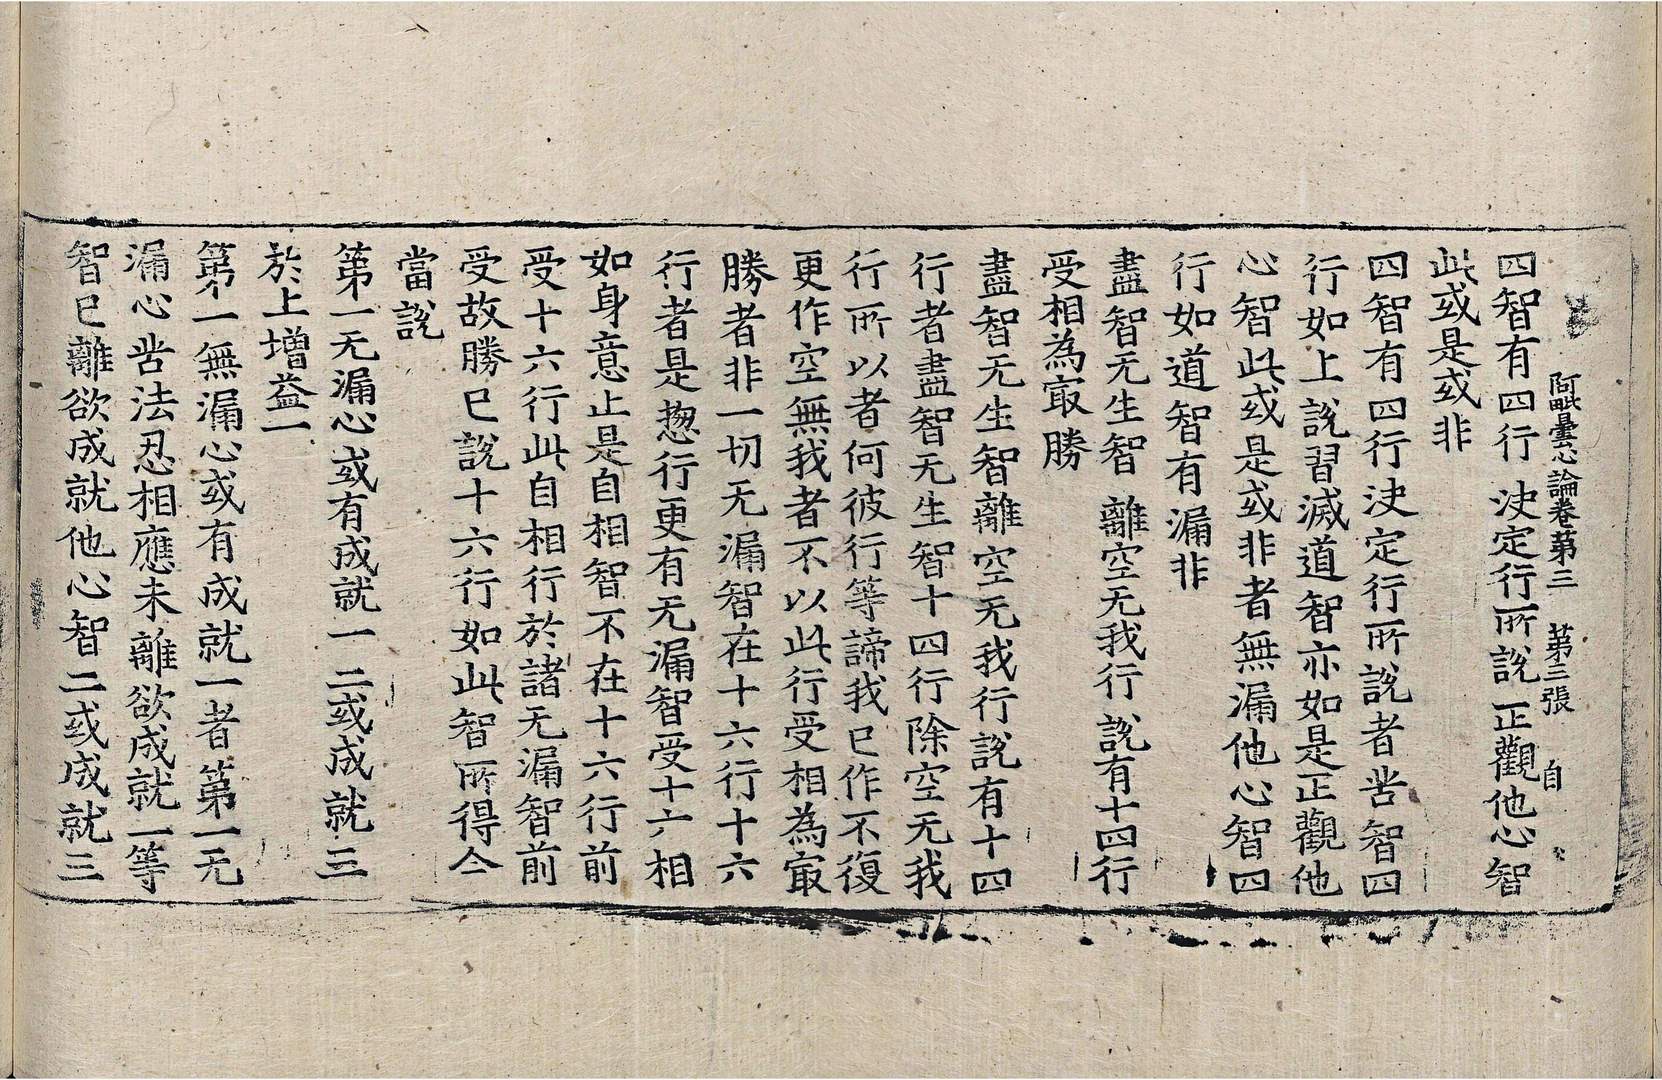 阿毗曇心論卷第三 第三張 自
四智有四行 決定行所說 正觀他心智
此或是或非
四智有四行決定行所說者苦智四
行如上說習滅道智亦如是正觀他
心智此或是或非者無漏他心智四
行如道智有漏非
盡智无生智 離空无我行 說有十四行
受相為㝡勝
盡智无生智離空无我行說有十四
行者盡智无生智十四行除空无我
行所以者何彼行等諦我已作不復
更作空無我者不以此行受相為㝡
勝者非一切无漏智在十六行十六
行者是惣行更有无漏智受十六相
如身意止是自相智不在十六行前
受十六行此自相行於諸无漏智前
受故勝已說十六行如此智所得今
當說
第一无漏心或有成就一 二或成就三
於上增益一
第一無漏心或有成就一者第一无
漏心苦法忍相應未離欲成就一等
智已離欲成就他心智二或成就三